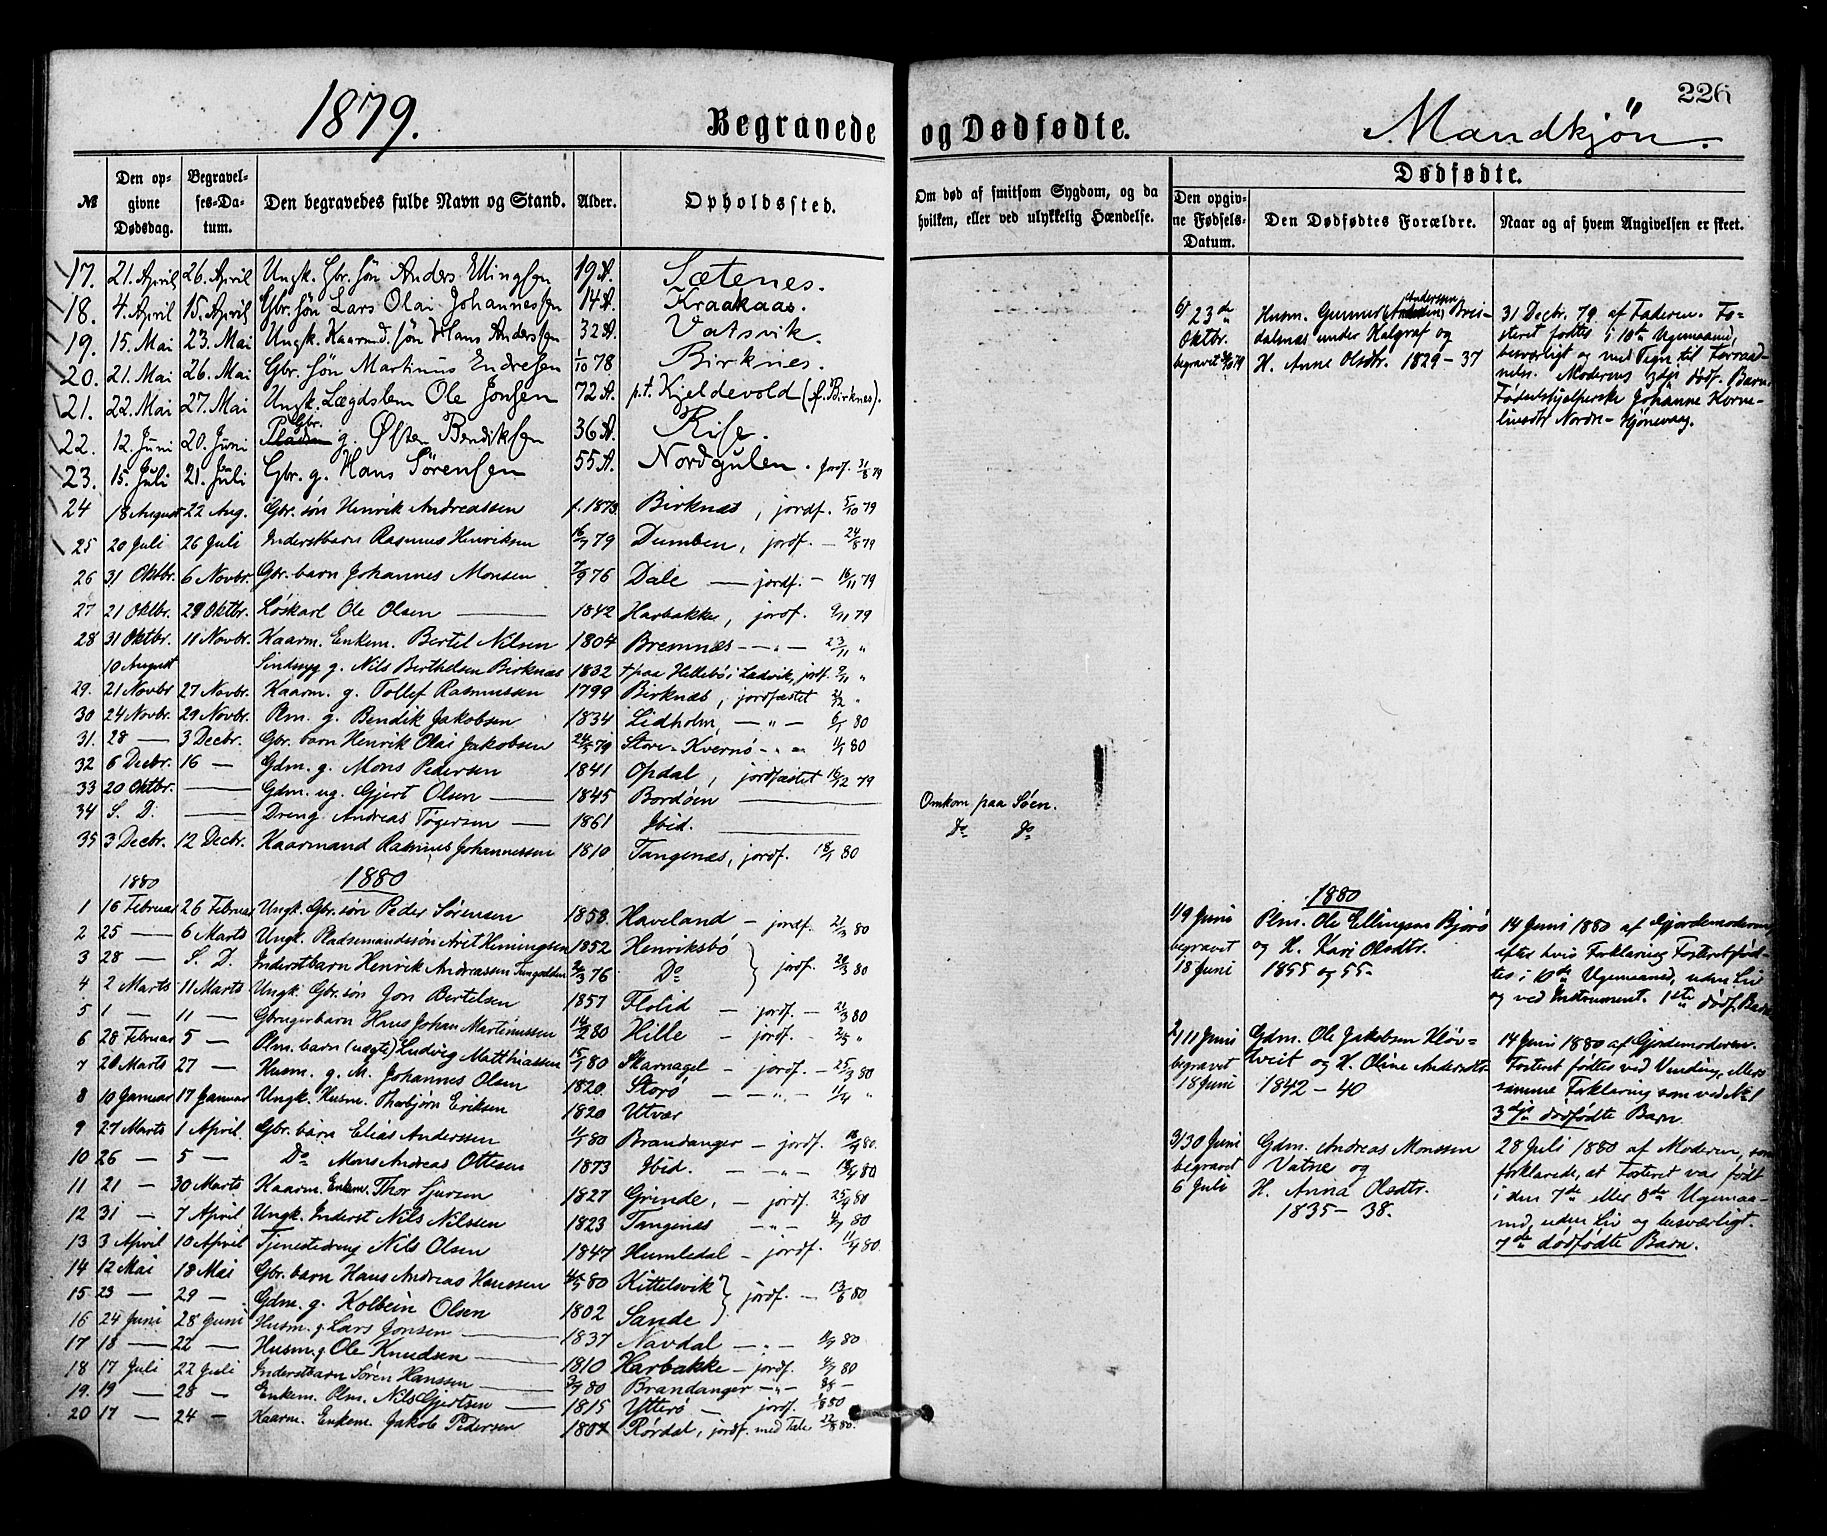 226
1879. Begravede og Dødfødte. Mandkjøn.
№ Den opgivne Dødsdag. Begravelses-Datum. Den begravedes fulde Navn og Stand. Alder. Opholdssted. Om død af smitsom Sygdom, og da hvilken, eller ved ulykkelig Hændelse.
Dødfødte.
Den opgivne Fødsels-Datum. Den Dødfødtes Forældre. Naar og af hvem Angivelsen er skeet.
17. 21. April 26. April Ungk. Gbr. søn Anders Ellingsen 19 A. Sætenes.
18. 4. April 15. April Gbr. søn Lars Olai Johannessen 14 A. Kraakaas.
19. 15. Mai 23. Mai Ungk. Kaarmd. søn Hans Anderssen 32 A. Vatsvik.
20. 21. Mai 26. Mai Gbr. søn Martinus Endresen 1/10 78 Birknes.
21. 22. Mai 27. Mai Ungk. Lægdslem Ole Jonsen 72 A. p.t. Kjeldevold (f. Birknes).
22. 12. Juni 20. Juni Gbr. g. Østen Bendiksen 36 A. Rise.
23. 15. Juli 21. Juli Gbr. g. Hans Sørensen 55 A. Nordgulen. jordf. 31/8 79
24 18 August 22 Aug. Gbr. søn Henrik Andreassen f. 1873. Birknæs, jordf. 5/10 79
25 20 Juli 26 Juli Inderstbarn Rasmus Henriksen 16/7 79 Dumben, jordf. — 24/8 79
26 31 Oktbr. 6 Novbr. Gbr. barn Johannes Monsen 7/9 76 Dale — jordf. — 16/11 79
27 21 Oktbr. 29 Oktbr. Løskarl Ole Olsen — 1842 Harbakke, jordf. 9/11 79
28 31 Oktbr. 11 Novbr. Kaarm. Enkem. Bertel Nilsen 1804 Bremnæs — „ — 23/11 „
10 August Sindsyg g. Nils Berthelsen Birknæs 1832 † paa Hellebø i Ladvik, jordf. 9/11 „
29. 21 Novbr 27 Novbr. Kaarm. g. Tollef Rasmussen 1799 Birknæs, jordfæstet
30 24 Novbr. 29 Novbr. Plm. g. Bendik Jakobsen 1834 Lidholm, — „ — 6/1 80
31. 28 — 3 Decbr. Gbr. barn Henrik Olai Jakobsen 24/5 79 Store-Kvernø — „ — 11/1 80
32 6 Decbr. 16 — Gdm. g. Mons Pedersen 1841 Opdal, jordfæstet 16/12 79
33 20 Oktbr. — Gdm. ug. Gjert Olsen — 1845 Bordøen — Omkom paa Søen.
34 S. D. — Dreng Andreas Tøgersen — 1861 Ibid. — Do Do
35 3 Decbr. 12 Decbr. Kaarmand Rasmus Johannessen 1810 Tangenæs, jordf. 18/1 80
1880 1880
1 16 Februar 26 Februar Ungk. Gbr. søn Peder Sørensen 1858. Haveland — jordf. 21/3 80
2 25 — 6 Marts Ungk. Pladsemandssøn Arit Heningsen 1852 Henriksbø
3 28 — S. D. Inderstbarn Henrik Andreassen 76 Do } jordf. 80
4 2 Marts 11 Marts Ungk. Gbr. søn Jon Bertelsen 1857 Flolid — jordf. — 21/3 80
5 1 — 11 — Gbrugerbarn Hans Johan Martinussen 14/2 80 Hille — jordf. —
6 28 Februar 5 — Plm. barn (uægte) Ludvig Matthiassen 15/1 80 Skarnagel — jordf. — 25/3 80
7 20 Marts 27 — Husm. g. M. Johannes Olsen 1820. Storø — „ — 1/4 „
8 10 Januar 17 Januar Ungk. Husm. Thorbjørn Eriksen 1820 Utvær
9 27 Marts 1 April. Gbr. barn Elias Anderssen 80 Brandanger — jordf. 80.
10 26 — 5 — Do Mons Andreas Ottesen 1873 Ibid. — „ — 80
11 21 — 30 Marts Kaarm. Enkem. Thor Sjursen 1827 Grinde, — jordf. 25/4 80
12 31 — 7 April Ungk. Inderst Nils Nilssen 1823 Tangenæs — „ — 80
13 3 April 10 April Tjenestedreng Nils Olsen 1847 Humledal — jordf. 11/4 80.
14 12 Mai 18 Mai Gbr. barn Hans Andreas Hanssen 80 Kittelsvik
15 23 — 29 — Gdm. g. Kolbein Olsen 1802 Sande } jordf. — 13/6 80
16 24 Juni 28 Juni Husm. g. Lars Jonsen — 1837 Navdal — „ — 80
17 18 — 22 — Husm. g. Ole Knudsen — 1810 Harbakke — jordf. 4/7 80
18 17 Juli 22 Juli Inderstbarn Søren Hanssen — 80 Brandanger — „ —
19. 19 — 28 — Enkem. Plm. Nils Gjertsen — 1815 Ytterø — jordf. 1/8 80
20 17 — 24 — Kaarm. Enkem. Jakob Pedersen 1807 Rørdal, jordf. med Tale 22/8 80.
6/ 23de Oktbr. begravet
Husm. Gunnar Anderssen Breidalnæs under Halgraf og
H. Anne Olsdtr. 1829 — 37
31 Decbr. 79 af Faderen. Fo-
steret fødtes i 10de Ugemaaned,
besværligt og med Tegn til Forraad-
nelse. Moderens 3dje dødf. Barn.
Fødselshjælperske Johanne Korne-
liusdtr Nordre-Hjønevaag.
1880
1/9 Juni begravet 18 Juni
Plm. Ole Ellingsen Bjorø
og H. Kari Olsdtr.
1855 og 55.
14 Juni 1880 af Gjordemoderen,
efter hvis Forklaring Fosteret fød-
tes i 10de Ugemaaned, uden Liv
og ved Instrument. 1ste dødf. Barn
2/11 Juni begravet 18 Juni
Gdm. Ole Jakobsen Kløv-
tveit og H. Oline Andersdtr
1842 — 40
14 Juni 1880 af Gjordemoderen.
Fosteret fødtes ved Vending, ellers
samme Forklaring som ved № 1
3dje dødfødte Barn.
3/30 Juni begravet 6 Juli
Gdm. Andreas Monssen
Vatne og
H. Anna Olsdtr.
1835 — 38.
28 Juli 1880 af Moderen, som
forklarede, at Fosteret var født
i den 7de eller 8de Ugemaa-
ned, uden Liv og besværligt.
7de dødfødte Barn.